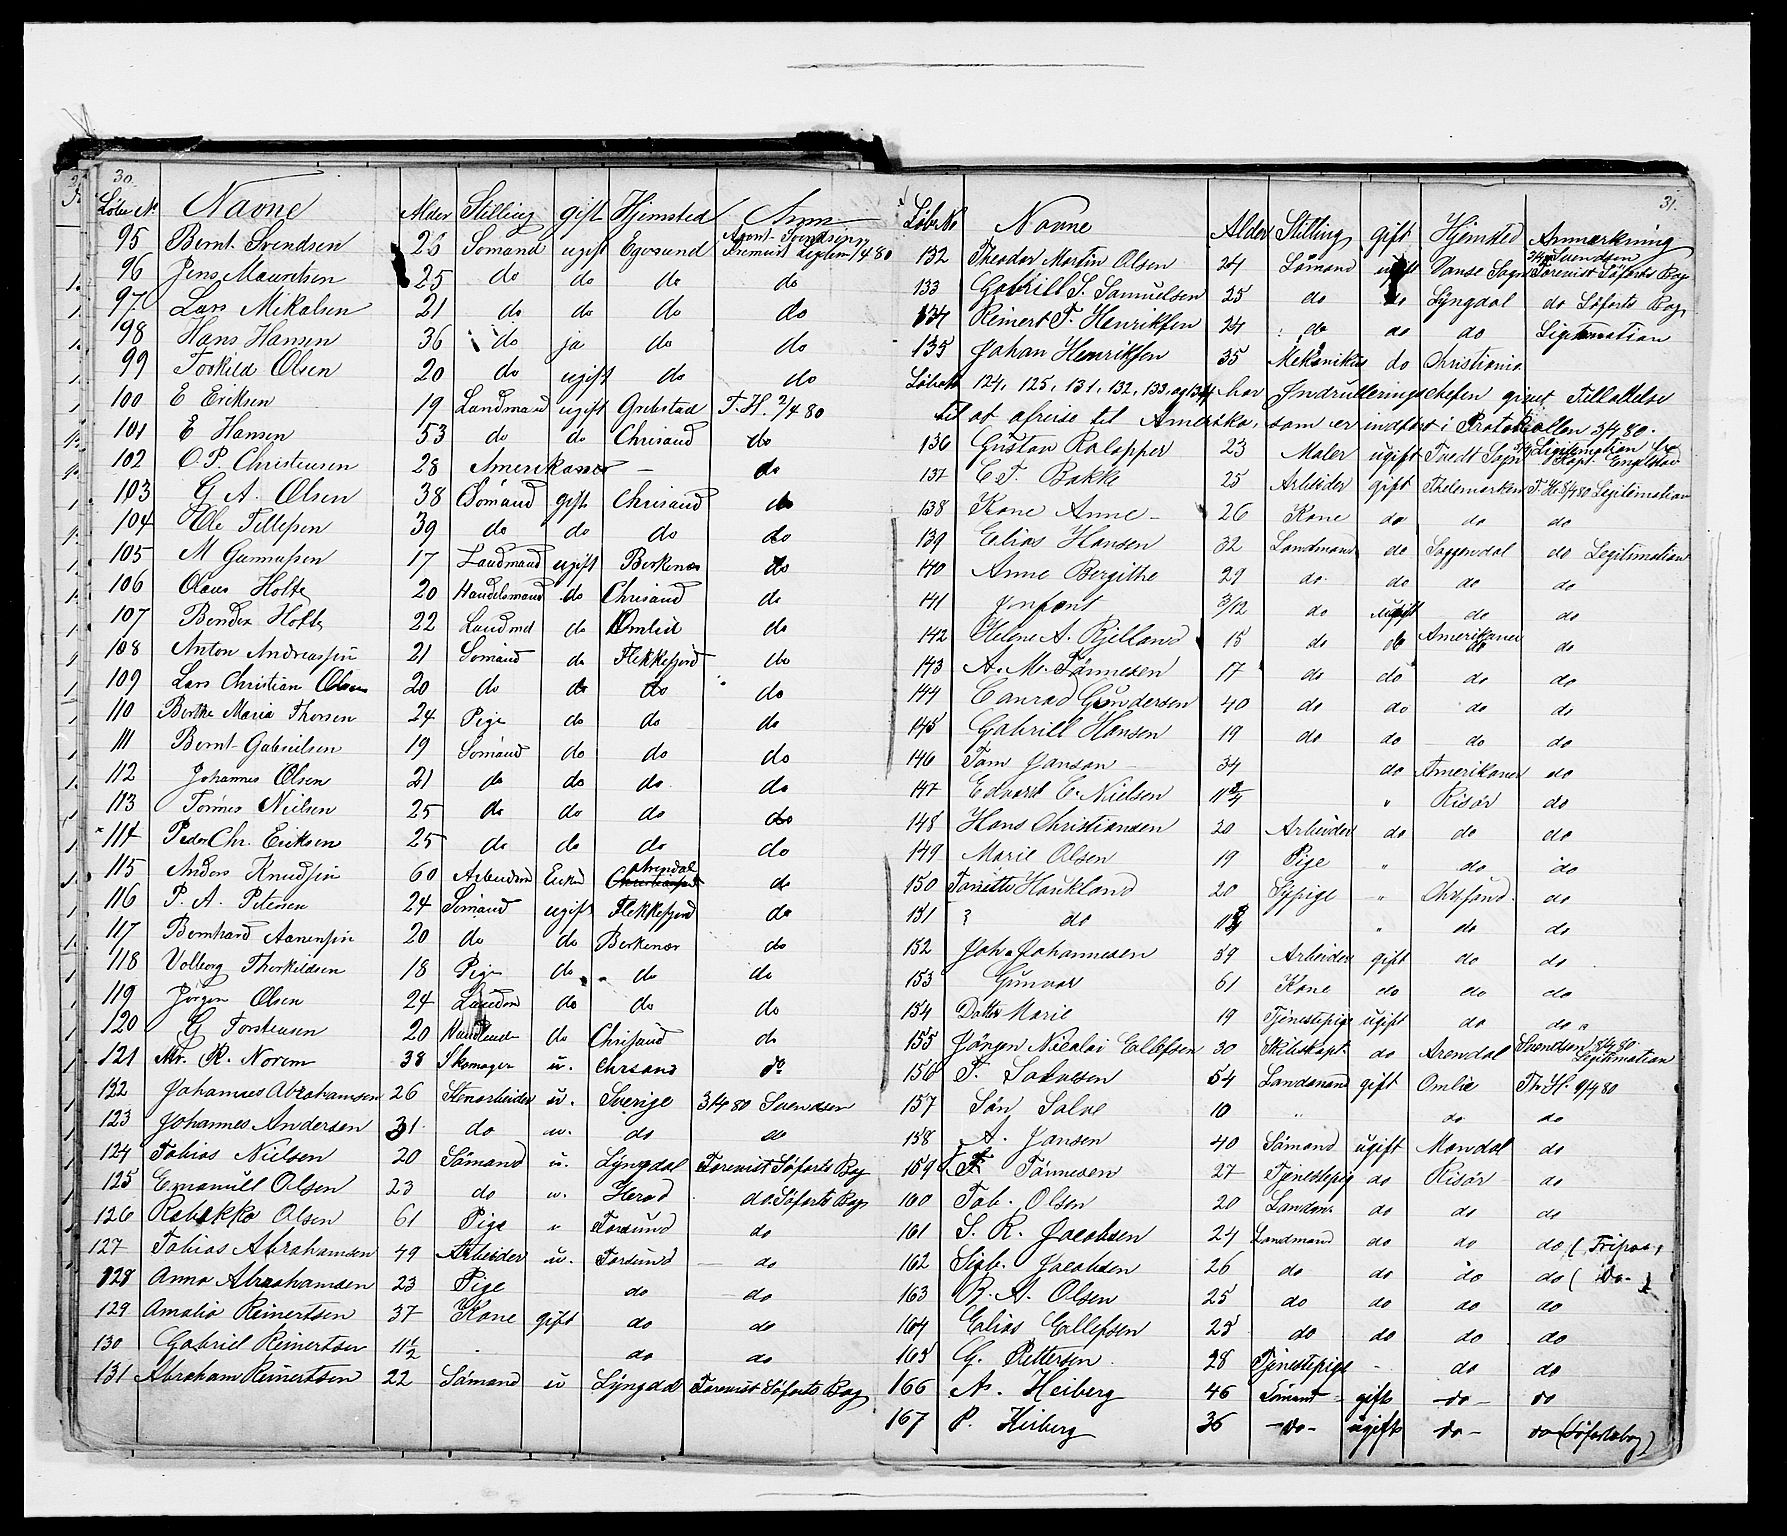 30.
Løbe № Navne Alder Stilling gift Hjemsted Anm
95 Bernt Svendsen 26 Sømand ugift Egersund Agent Svendsen Fremvist Legitem /4 80
96 Jens Mauritsen 25 do do do do
97 Lars Mikalsen 21 do do do do
98 Hans Hansen 36 do ja do do
99 Torkild Olsen 20 do ugift do do
100 E Eriksen 19 Landmand ugift Grebstad T. H. 2/4 80
101 E Hansen 53 do do Chrisand do
102 O. P. Christensen 28 Amerikaner — do
103 G A. Olsen 38 Sømand gift Chrisand do
104 Ole Tellefsen 39 do do do do
105 M Gunnufsen 17 Landmand ugift Berkenes do
106 Olaus Holte 20 Handelsmand do Chrisand do
107 Bendix Holte 22 Landmd do Omlid do
108 Anton Andreassen 21 Sømand do Flekkefjord do
109 Lars Christian Olsen 20 do do do do
110 Berthe Maria Thorsen 24 Pige do do do
111 Bernt Gabrielsen 19 Sømand do do do
112 Johannes Olsen 21 do do do do
113 Tønnes Nielsen 25 do do do do
114 Peder Chr. Eriksen 25 do do do do
115 Anders Knudsen 60 Arbeider Enkem Arendal do
116 P. A. Petersen 24 Sømand ugift Flekkefjord do
117 Bernhard Aanensen 20 do do Berkenær do
118 Volborg Thorkildsen 18 Pige do do do
119 Jørgen Olsen 24 Landm do do do
120 G Torstensen 20 do Chrisand do
121 Mr. R. Norem 38 Skomager u. Chrsand do
122 Johannes Abrahamsen 26 Stenarbeider u. Sverige 3/4 80 Svendsen
123 Johannes Andersen 31 do u. do do
124 Tobias Nielsen 20 Sømand u. Lyngdal Forevist Søfarts Bog
125 Emanuell Olsen 23 do u. Herad do. Søfarts Bog
126 Rebekka Olsen 61 Pige " Farsund do
127 Tobias Abrahamsen 49 Arbeider u. Farsund do
128 Anna Abrahamsen 23 Pige do do
129 Amalia Reinertsen 37 Kone gift do do
130 Gabriel Reinertsen 1 1/2 do do
131 Abraham Reinertsen 22 Sømand u Lyngdal Forevist Søfarts Bog
31.
Løbe№ Navne Alder Stilling gift Hjemsted Anmærkning
132 Theodor Martin Olsen 24 Sømand ugift Vanse Sogn 3/4 80 Svendsen Forevist Søfarts Bog
133 Gabriell S. Samuelsen 25 do do Lyngdal do Søfarts Bog
134 Reinert T. Henriksen 24 do do do Ligitimation
135 Johan Henriksen 35 Mekanikus do Christiania
Løbe№ 124, 125, 131, 132, 133 og 134 har Indrulleringschefen givet Tilladelse
til at afreise til Amerika, som er indført i Protokollen 3/4 80.
136 Gustav Rolapper 23 Maler ugift Tvedt Sogn Ligitimation Kapt. Engelstad
137 E. T. Bakke 25 Arbeider gift Thelemarken T. H. 8/4 80 Legitimation
138 Kone Anne 26 Kone do do do
139 Elias Hansen 32 Landmand do Saggendal do Legitimation
140 Anne Bergithe 29 do do do do
141 Infant 3/12 do ugift do do
142 Helene A. Rjelland 15 do do Amerikaner do do
143 A. M. Tønnesen 17 do do do do
144 Conrad Gundersen 40 do do do do
145 Gabriell Hansen 19 do do do do
146 Tom Janson 34 do Amerikaner do
147 Edvard E. Nielsen 11 3/4 " Risør do
148 Hans Christiansen 20 Arbeider do do do
149 Marie Olsen 19 Pige " do do
150 Tonette Haukland 20 Sypige " Chrisand do
151 ? do 11 3/4 " do do
152 Joh. Johannesen 59 Arbeider gift do do
153 Gunvor 61 Kone do do do
154 Datter Marie 19 Tjenestepige ugift do do
155 Jørgen Nicolai Ellefsen 30 Skibskapt. do Arendal Svendsen 8/4 80. Legitimation
156 T. Salvesen 54 Landmand gift Omlie Th. H. 9/4 80
157 Søn Salve 10 " do do
158 A. Jansen 40 Sømand ugift Mandal do
159 T. Tønnesen 27 Tjenestepig do Risør do
160 Tob. Olsen 20 Landm do do do
161 S. R. Jacobsen 24 Landmand do do do ( Tripoa,
162 Sigb. Jacobsen 26 do do do do ( Do. )
163 B. A. Olsen 25 do do do do
164 Elias Ellefsen 25 do do do do
165 G. Pettersen 28 Tjenestepige - do do
166 A. Heiberg 46 Sømand gift do do
167 P. Heiberg 36 do ugift do do (Søfartsbog)